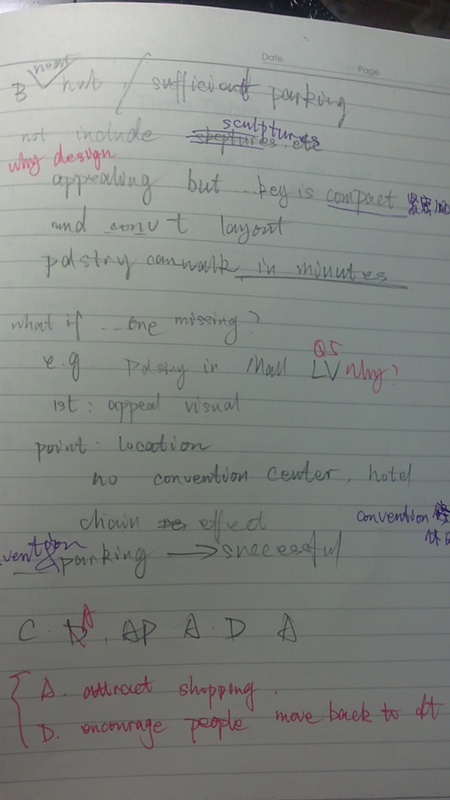 Date Page
B hub / sufficient parking
not include sculptures etc
why design
appealing but .. key is compact 紧密
and convt layout
pdstry can walk in minutes
what if ... one missing?
Q5
e.g pdstry in Mall LV why?
1st : appeal visual
point : location
no convention center, hotel
chain effect convention
parking → successful
C. A, AP A. D A
A. attract shopping.
D. encourage people move back to dt